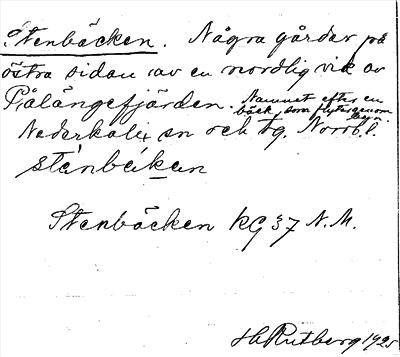 Stenbäcken. Några gårdar på
östra sidan av en nordlig vik av
Pålängefjärden. Namnet efter en
bäck, som flyter genom
byn.
Nederkalix sn och tg. Norrb. l.
stenbäkan
Stenbäcken KG 37 N.M.
Rutberg 1925